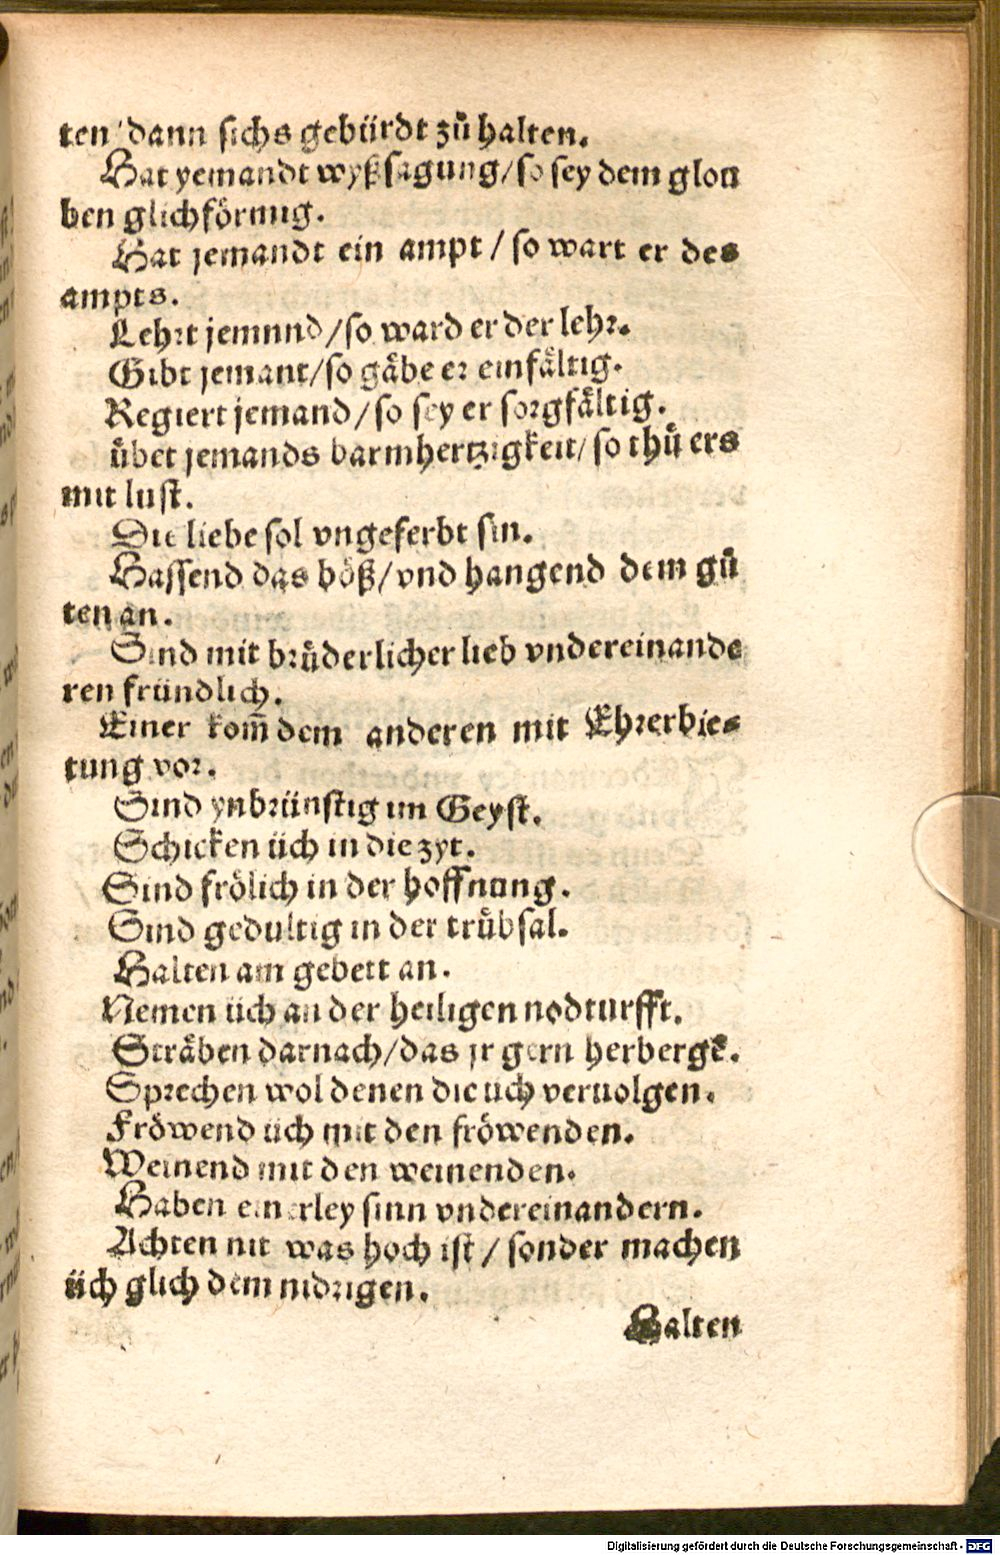 ten dann sichs gebürdt zů halten.
Hat yemandt wyßsagung/so sey dem glou
ben glichförmig.
Hat jemandt ein ampt / so wart er des
ampts.
Lehrt jemnnd/so ward er der lehr.
Gibt jemant/so gäbe er einfältig.
Regiert jemand/so sey er sorgfältig.
übet jemands barmhertzigkeit/so thů ers
mit lust.
Die liebe sol vngeferbt sin.
Hassend das böß/vnd hangend dem gů
ten an.
Sind mit brůderlicher lieb vndereinande
ren fründlich.
Einer kom̄ dem anderen mit Ehrerbie-
tung vor.
Sind ynbrünstig im Geyst.
Schicken üch in die zyt.
Sind frölich in der hoffnung.
Sind gedultig in der trůbsal.
Halten am gebett an.
Nemen üch an der heiligen nodturfft.
Sträben darnach/das jr gern herbergk.
Sprechen wol denen die üch veruolgen.
Fröwend üch mit den fröwenden.
Weinend mit den weinenden.
Haben einerley sinn vndereinandern.
Achten nit was hoch ist / sonder machen
üch glich dem nidrigen.
Halten
Digitalisierung gefördert durch die Deutsche Forschungsgemeinschaft - DFG